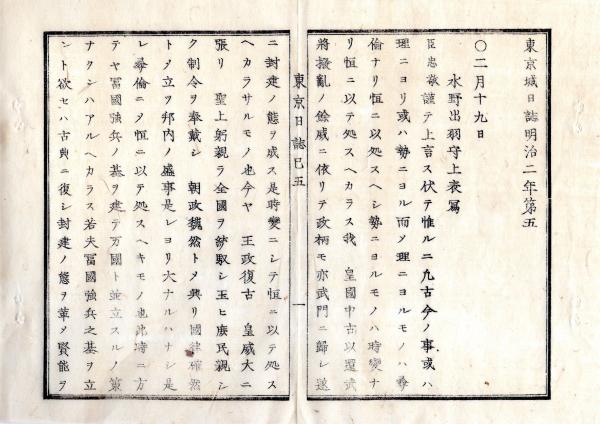 東京城日誌明治二年第五
〇二月十九日
水野出羽守上表寫
臣忠敬謹テ上言ス伏テ惟ルニ凡古今ノ事或ハ
理ニヨリ或ハ勢ニヨル而メ理ニヨルモノハ尋
倫ナリ恒ニ以処スヘシ勢ニヨルモノハ時變ナ
リ恒ニ以テ処スヘカラス我 皇國中古以還武
將撥亂ノ餘威ニ依リテ政柄モ亦武門ニ歸シ遂
東京日誌巳五
一
ニ封建ノ態ヲ成ス是時變ニシテ恒ニ以テ処ス
ヘカラサルモノ也今ヤ 王政復古 皇威大ニ
張リ 聖上躬親ラ全國ヲ統馭シ玉ヒ庶民親シ
ク制令ヲ奉戴シ 朝政巍然トメ興リ國律確然
トメ立ヲ邦内ノ盛事是レヨリ大ナルハナシ是
レ尋倫ニメ恒ニ以テ処スヘキモノ也此時ニ方
テヤ冨國強兵ノ基ヲ建テ万國ト並立スルノ策
ナクンハアルヘカラス若夫冨國強兵之基ヲ立
ント欲セハ古典ニ復シ封建ノ態ヲ革メ賢能ヲ